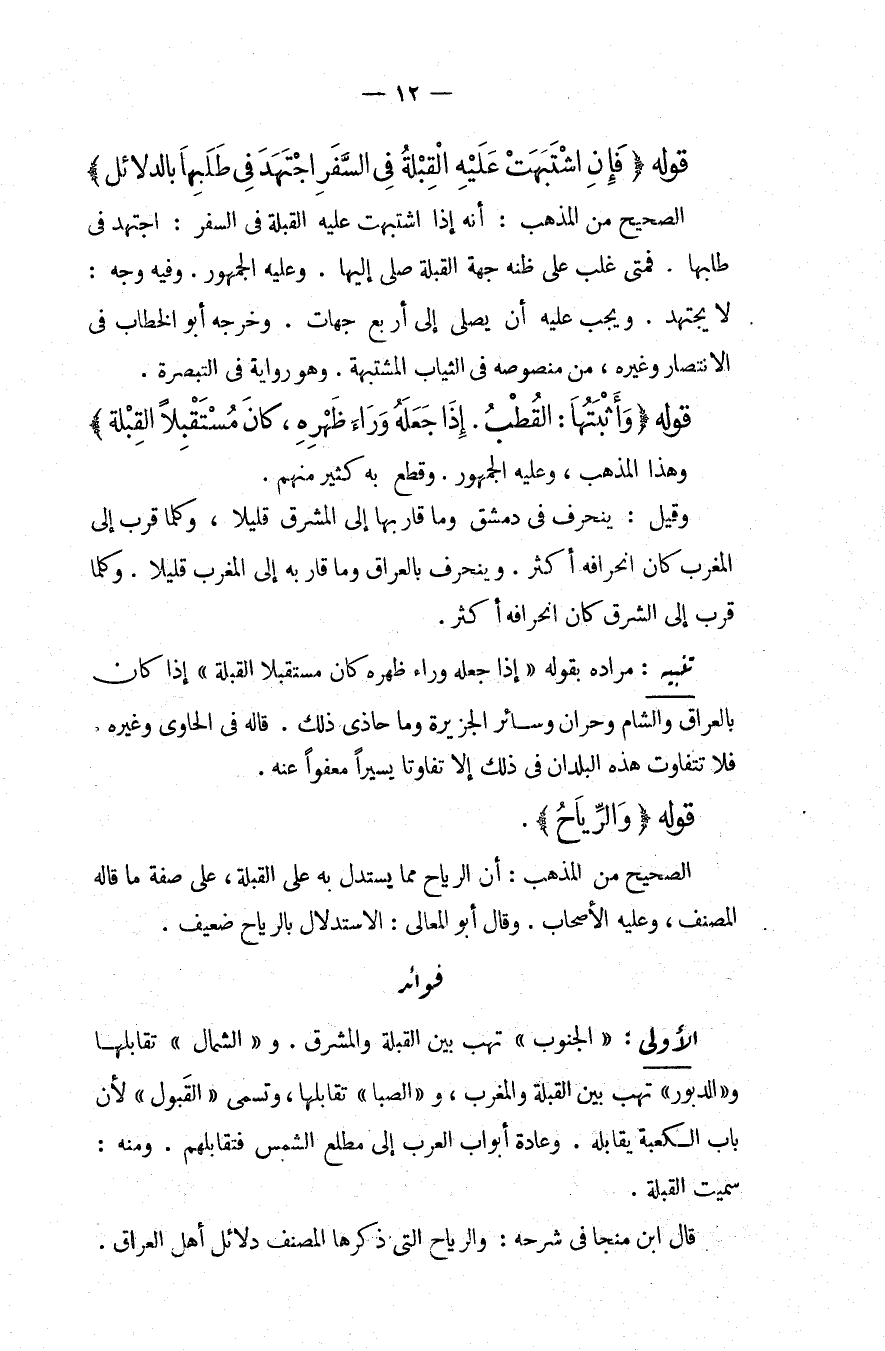 — ١٢ —
قوله ﴿ فَإِنِ اشْتَبَهَتْ عَلَيْهِ الْقِبْلَةُ فِى السَّفَرِ اجْتَهَدَ فِى طَلَبِهاَ بالدلائل ﴾
الصحيح من المذهب : أنه إذا اشتبهت عليه القبلة فى السفر : اجتهد فى
طلبها . فمتى غلب على ظنه جهة القبلة صلى إليها . وعليه الجمهور . وفيه وجه :
لا يجتهد . ويجب عليه أن يصلى إلى أربع جهات . وخرجه أبو الخطاب فى
الانتصار وغيره ، من منصوصه فى الثياب المشتبهة . وهو رواية فى التبصرة .
قوله ﴿ وَأَثْبَتُهاَ : القُطْبُ . إِذَا جَعَلَهُ وَرَاءَ ظَهْرِهِ ، كانَ مُسْتَقْبِلاً القِبْلة ﴾
وهذا المذهب ، وعليه الجمهور . وقطع به كثير منهم .
وقيل : ينحرف فى دمشق وما قاربها إلى المشرق قليلا ، وكلما قرب إلى
المغرب كان انحرافه أكثر . وينحرف بالعراق وما قاربه إلى المغرب قليلا . وكلما
قرب إلى الشرق كان انحرافه أكثر .
تنبيه : مراده بقوله « إذا جعله وراء ظهره كان مستقبلا القبلة » إذا كان
بالعراق والشام وحران وسائر الجزيرة وما حاذى ذلك . قاله فى الحاوى وغيره .
فلا تتفاوت هذه البلدان فى ذلك إلا تفاوتا يسيراً معفواً عنه .
قوله ﴿ وَالرِّياَحُ ﴾ .
الصحيح من المذهب : أن الرياح مما يستدل به على القبلة ، على صفة ما قاله
المصنف ، وعليه الأصحاب . وقال أبو المعالى : الاستدلال بالرياح ضعيف .
فوائد
الأولى : « الجنوب » تهب بين القبلة والمشرق . و « الشمال » تقابلها
و«الدبور» تهب بين القبلة والمغرب ، و «الصبا» تقابلها ، وتسمى « القَبول » لأن
باب الكعبة يقابله . وعادة أبواب العرب إلى مطلع الشمس فتقابلهم . ومنه :
سميت القبلة .
قال ابن منجا فى شرحه : والرياح التى ذكرها المصنف دلائل أهل العراق .